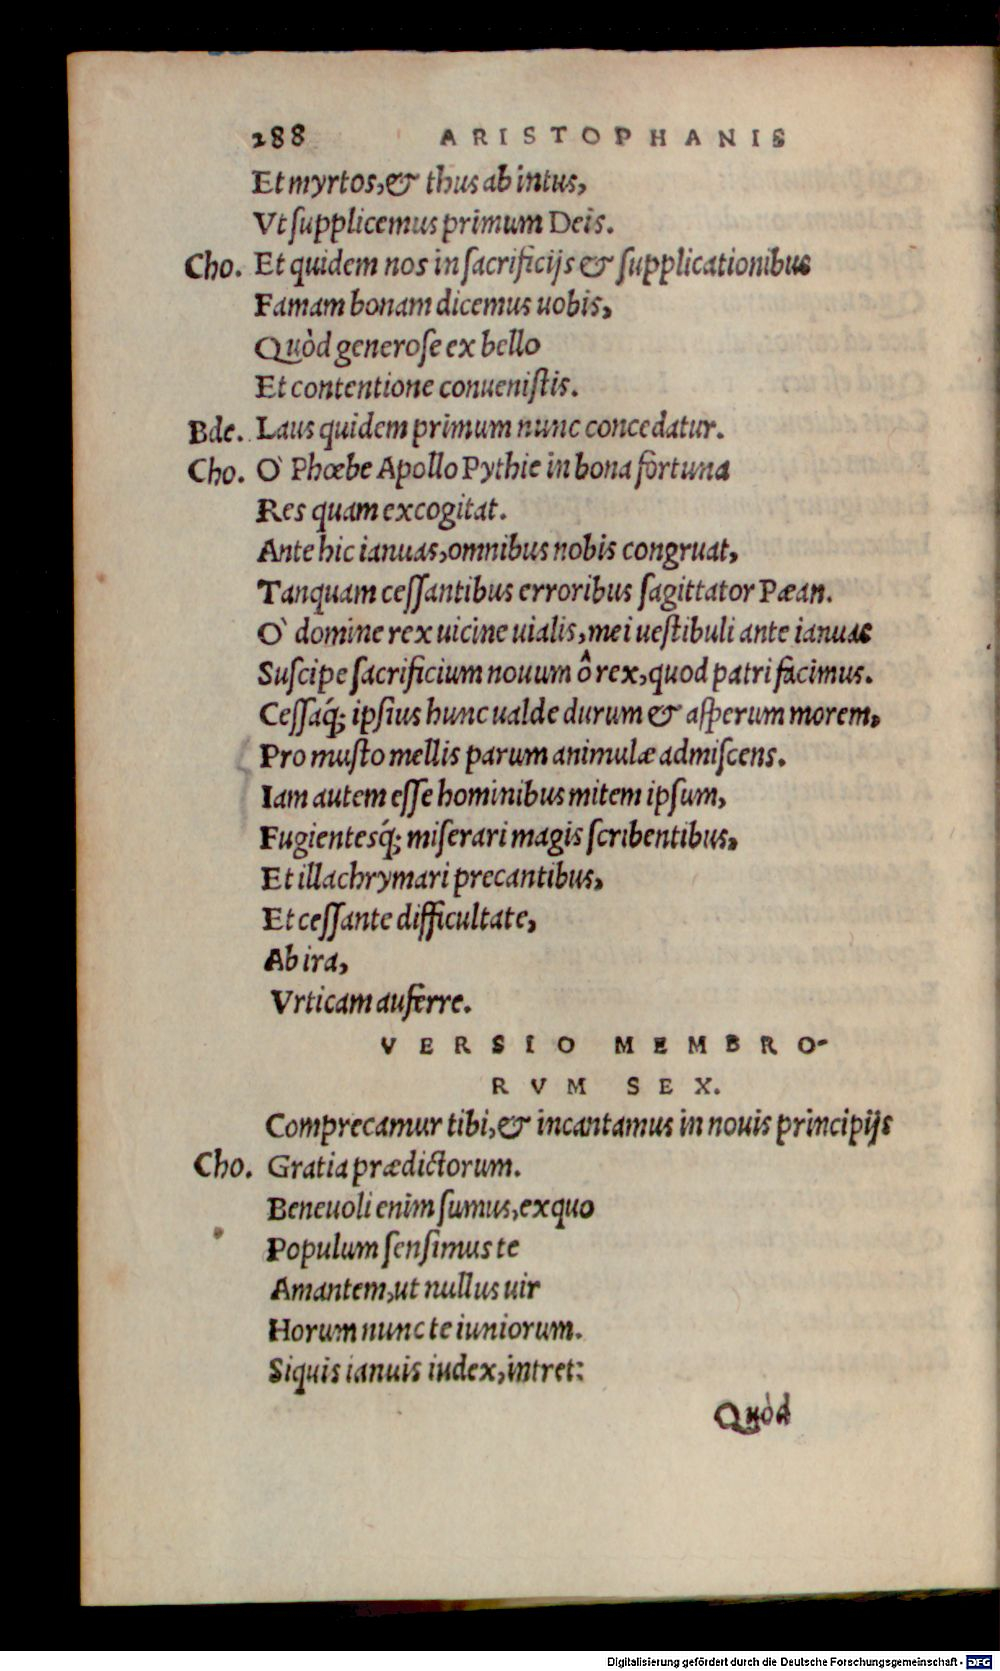 288 ARISTOPHANIS
Et myrtos, & thus ab intus,
Vt supplicemus primum Deis.
Cho. Et quidem nos in sacrificijs & supplicationibus
Famam bonam dicemus uobis,
Quòd generose ex bello
Et contentione conuenistis.
Bde. Laus quidem primum nunc concedatur.
Cho. O` Phœbe Apollo Pythie in bona fortuna
Res quam excogitat.
Ante hic ianuas, omnibus nobis congruat,
Tanquam cessantibus erroribus sagittator Pæan.
O` domine rex uicine uialis, mei uestibuli ante ianuas
Suscipe sacrificium nouum ô rex, quod patri facimus.
Cessaq́; ipsius hunc ualde durum & asperum morem,
Pro musto mellis parum animulæ admiscens.
Iam autem esse hominibus mitem ipsum,
Fugientesq́; miserari magis scribentibus,
Et illachrymari precantibus,
Et cessante difficultate,
Ab ira,
Vrticam auferre.
VERSIO MEMBRO-
RVM SEX.
Comprecamur tibi, & incantamus in nouis principijs
Cho. Gratia prædictorum.
Beneuoli enim sumus, ex quo
Populum sensimus te
Amantem, ut nullus uir
Horum nunc te iuniorum.
Siquis ianuis iudex, intret:
Quòd
Digitalisierung gefördert durch die Deutsche Forschungsgemeinschaft - DFG